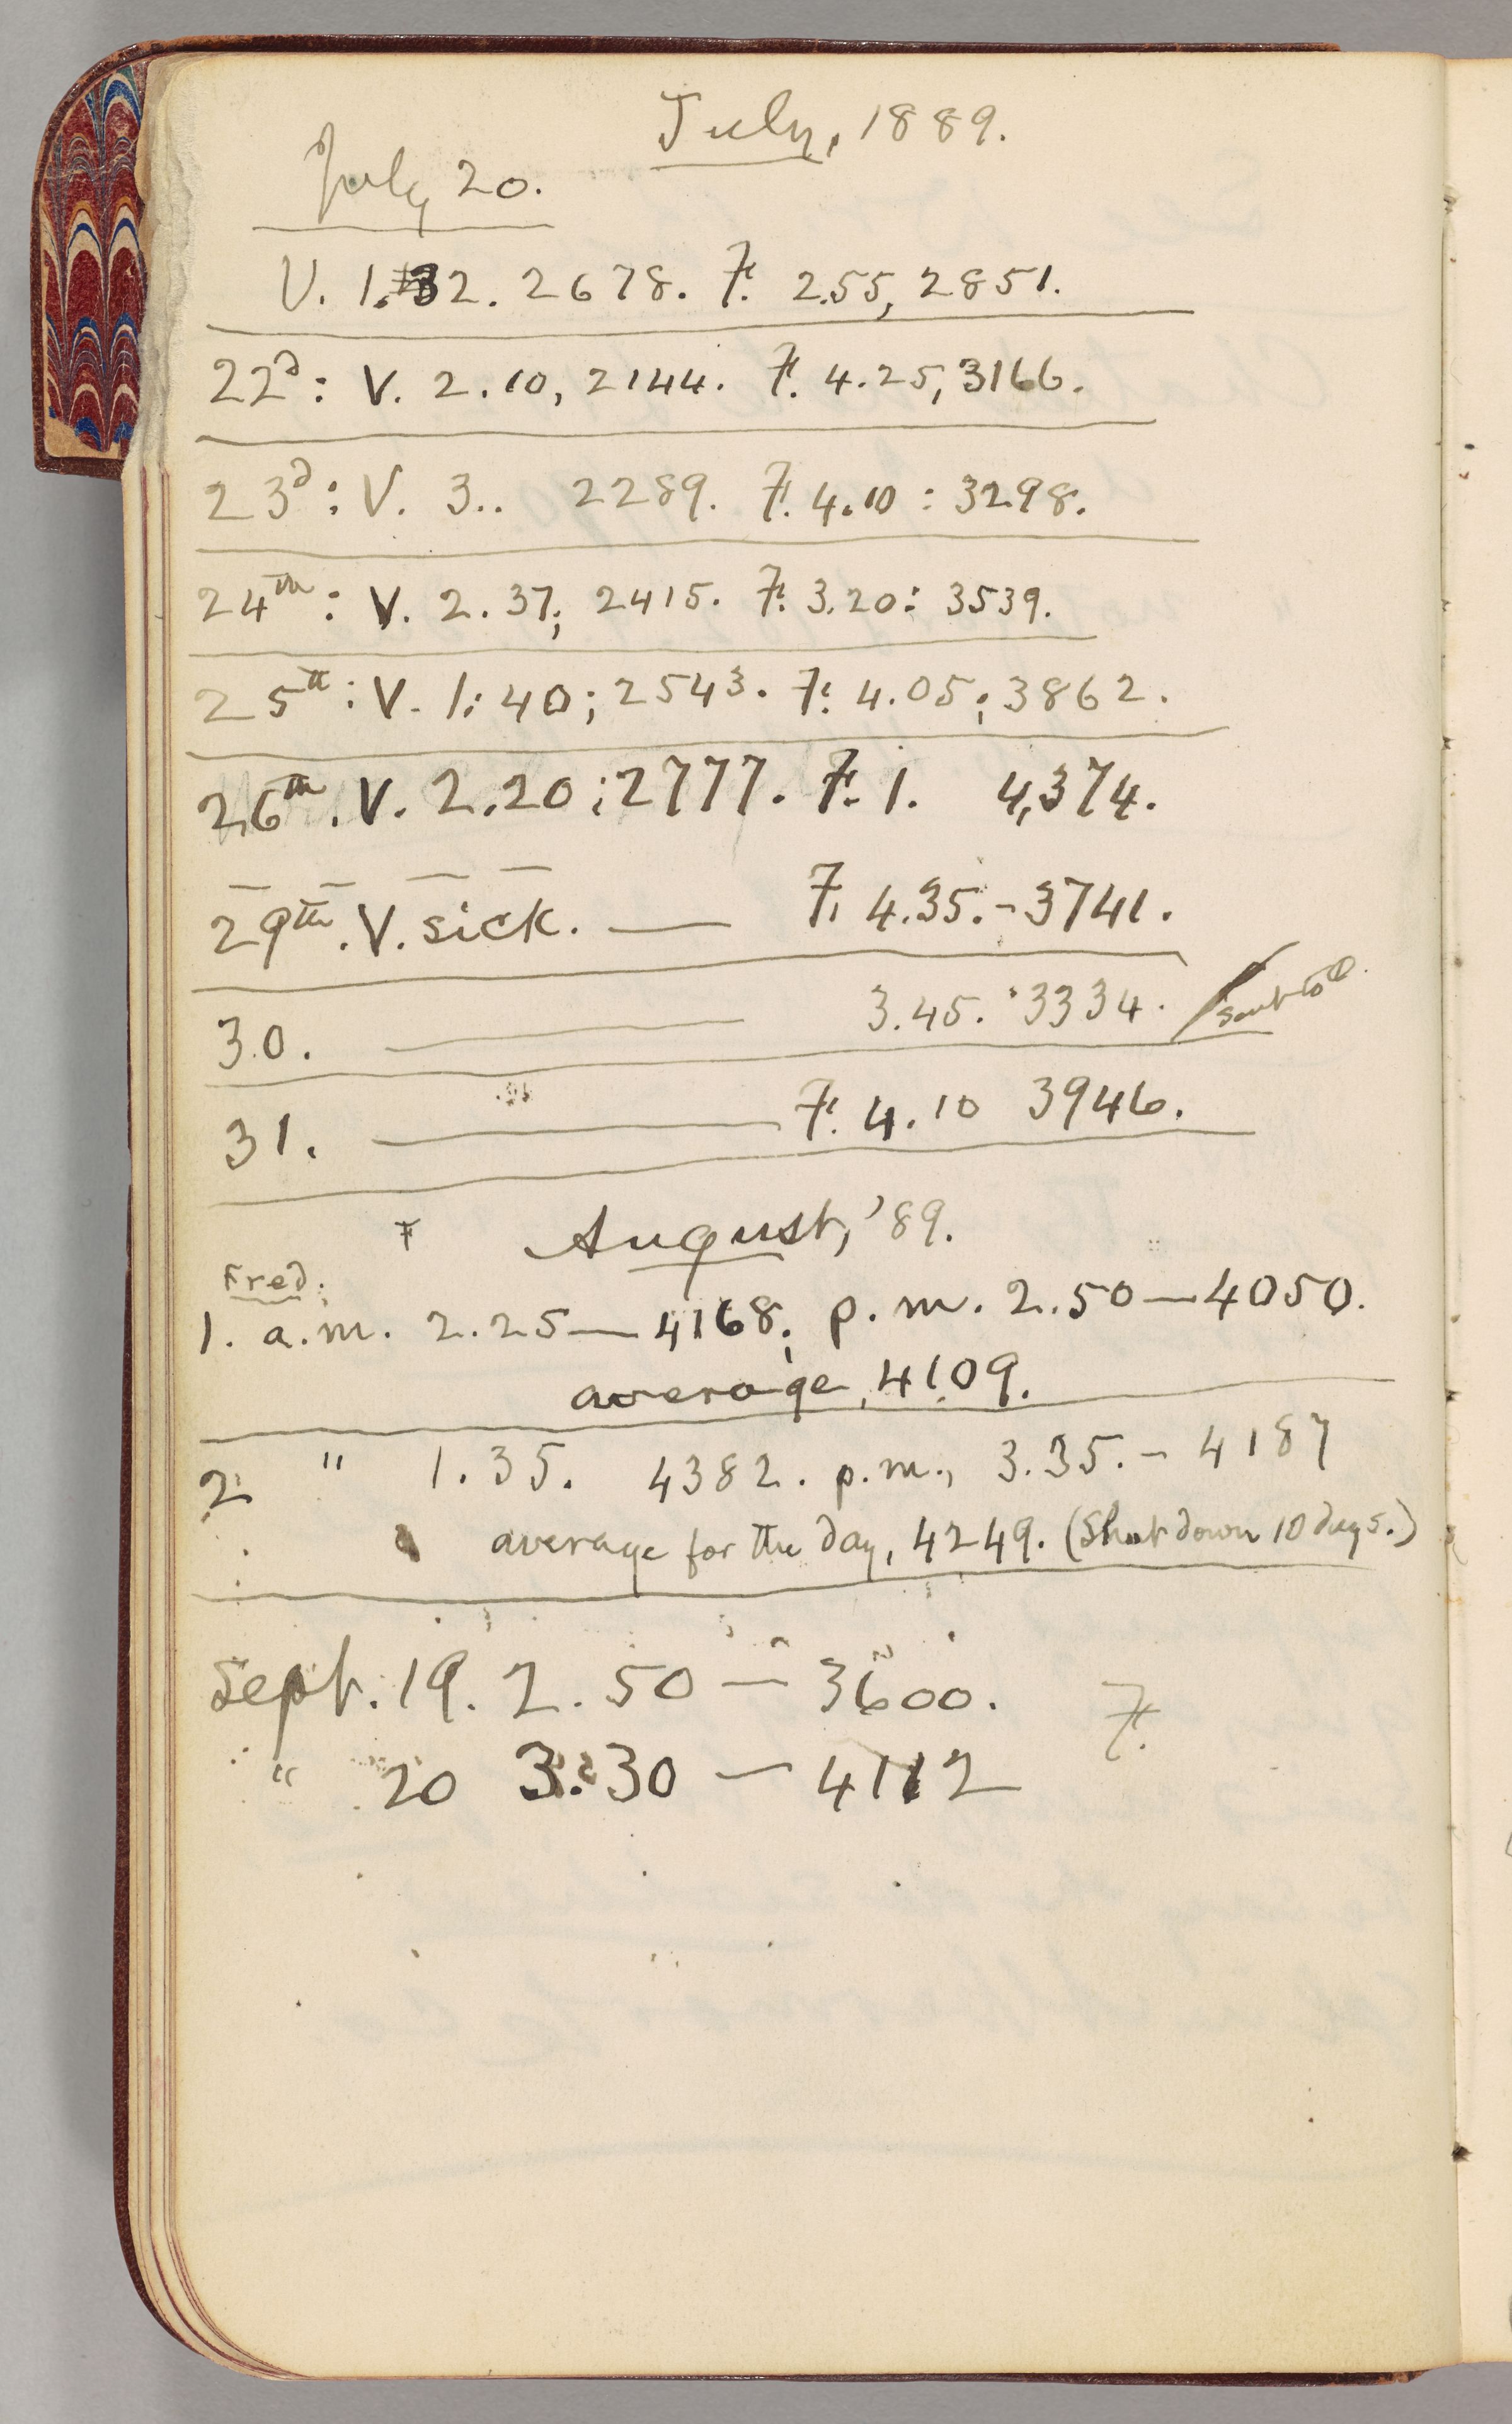 July, 1889.
July 20.
V. 1.32. 2678. F. 2.55, 2851.
22d: V. 2.10, 2144. F. 4.25, 3166.
23d: V. 3.. 2289. F. 4.10 : 3298.
24th: V. 2.37; 2415. F. 3.20: 3539.
25th: V. 1:40; 2543. F. 4.05; 3862.
26th. V. 2.20; 2777. F. 1. 4,374.
29th. V. sick. — F. 4.35.-3741.
30. — 3.45. 3334.
31. — F. 4.10 3946.
F August, '89.
Fred.
1. a.m. 2.25—4168; p.m. 2.50—4050.
average, 4109.
2 " 1.35. 4382. p.m., 3.35.- 4187
average for the day, 4249. (Shut down 10 days.)
Sept. 19. 2.50 — 3600. F.
" 20 3:30 — 4112